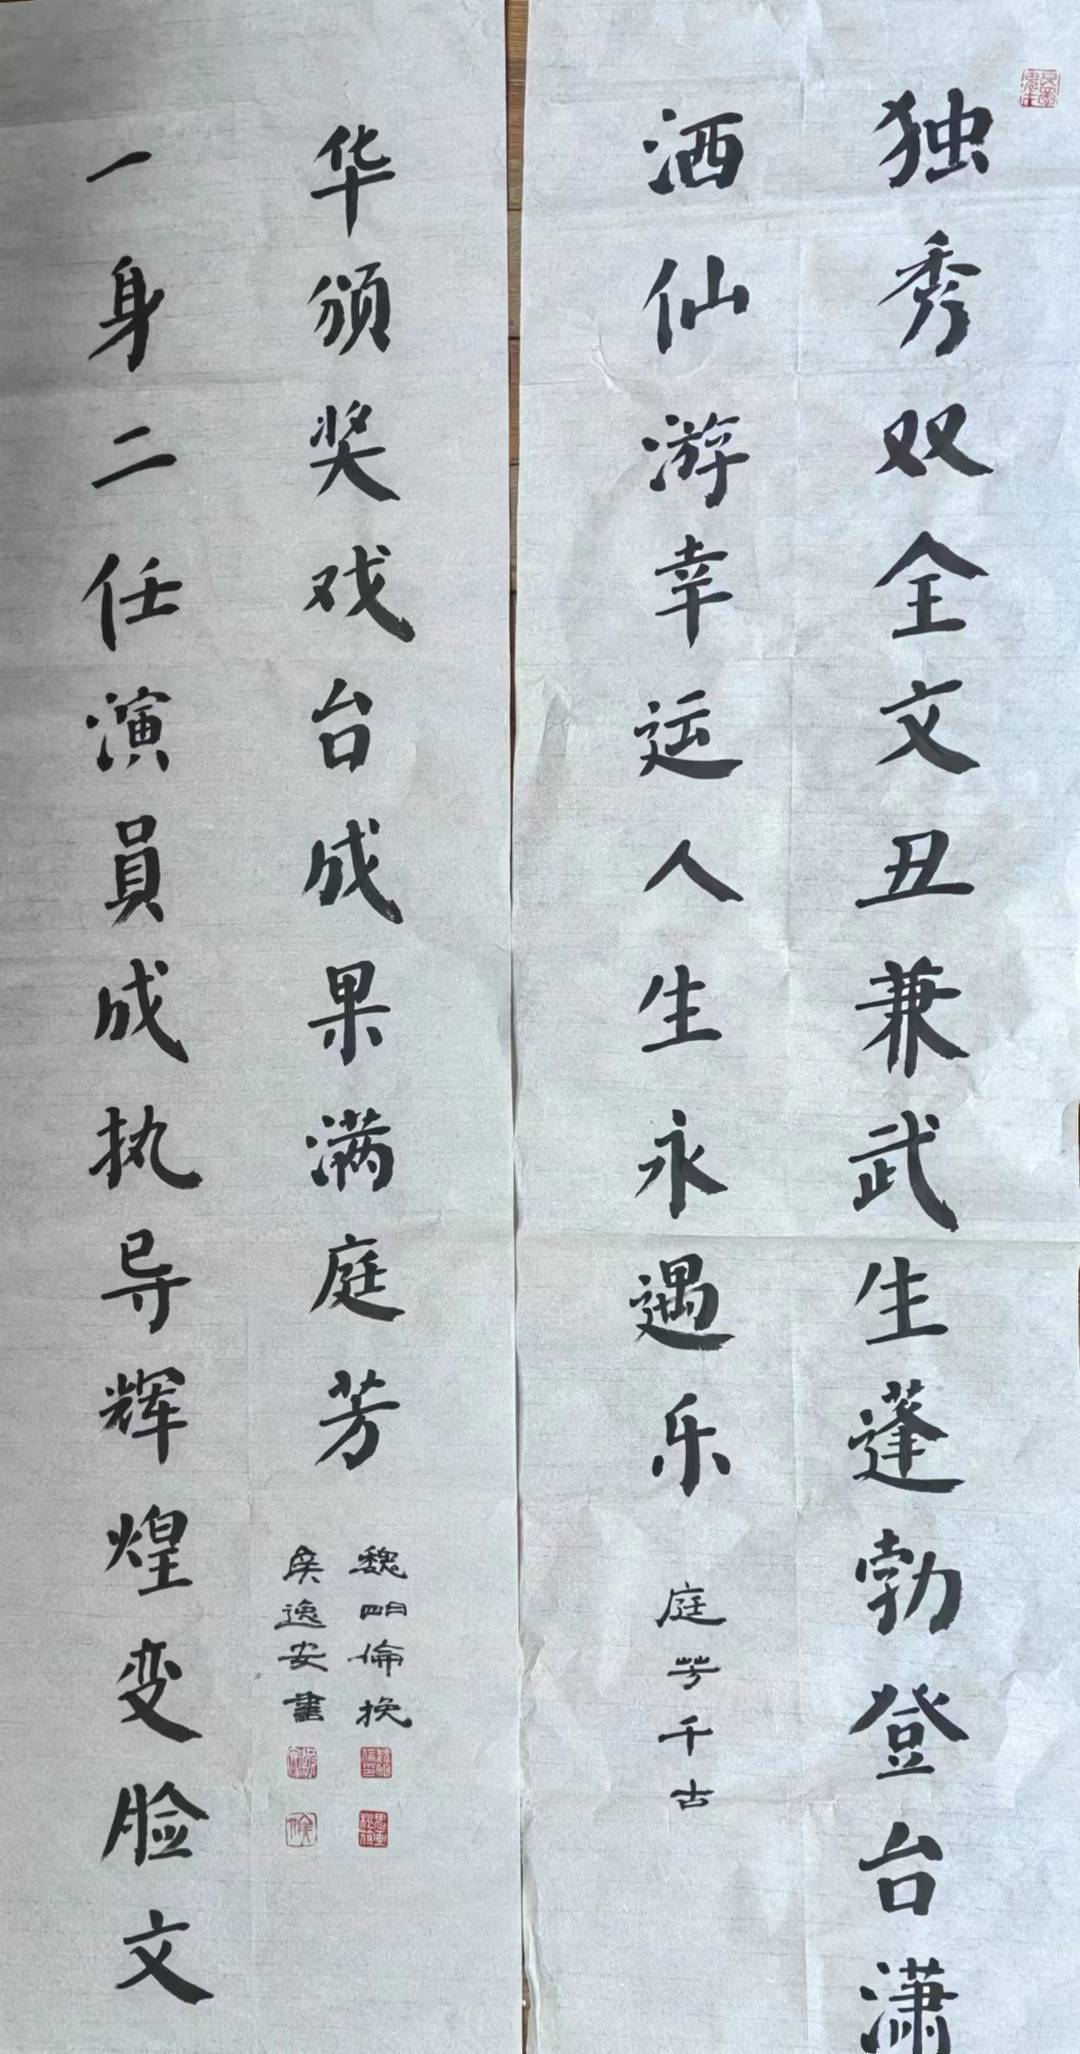 独秀双全文丑兼武生蓬勃登台潇
洒仙游幸运人生永遇乐
庭芳千古
一身二任演員成执导辉煌变脸文
华颁奖戏台成果满庭芳
魏明倫挽
侯逸安書